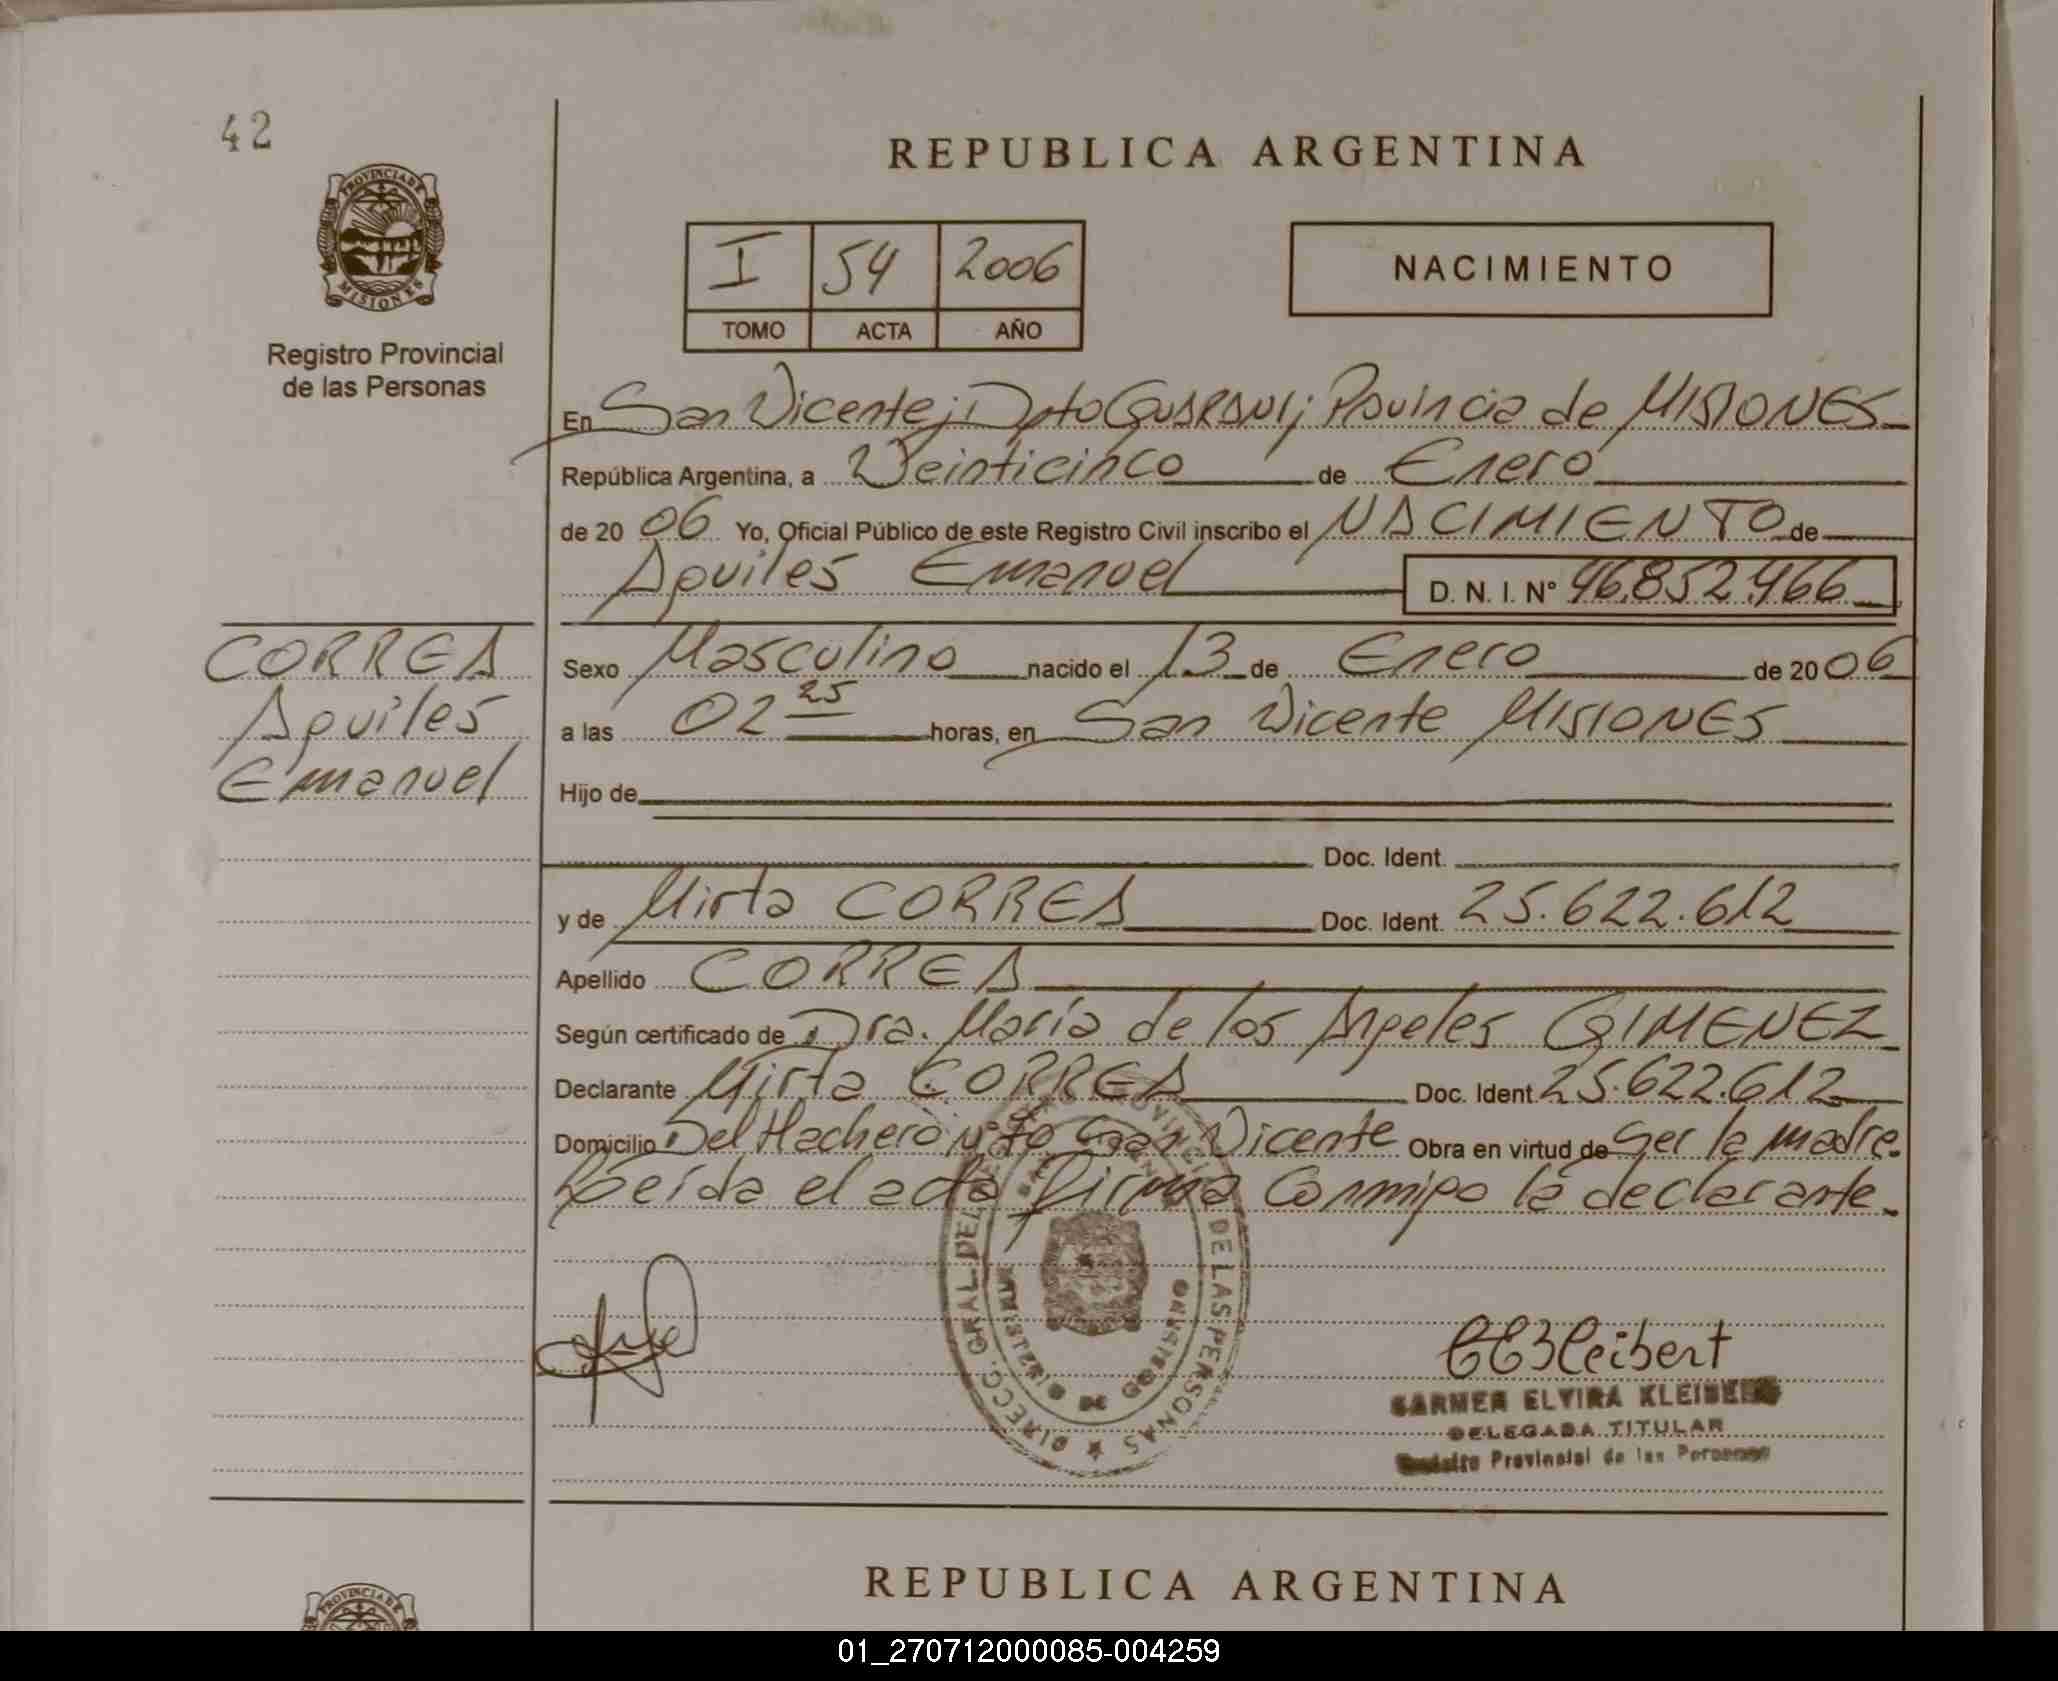 42
REPUBLICA ARGENTINA
PROVINCIA DE
MISIONES
I 54 2006
TOMO ACTA AÑO
NACIMIENTO
Registro Provincial
de las Personas
En San Vicente; Dpto Guarani; Provincia de MISIONES
República Argentina, a Veinticinco de Enero
de 20 06 Yo, Oficial Público de este Registro Civil inscribo el NACIMIENTO de
Aquiles Emanuel D. N. I. N° 46.852.466
CORREA
Aquiles
Emanuel
Sexo Masculino nacido el 13 de Enero de 20 06
a las 02 25 horas, en San Vicente MISIONES
Hijo de
Doc. Ident.
y de Mirta CORREA Doc. Ident. 25.622.612
Apellido CORREA
Según certificado de Dra. María de los Angeles GIMENEZ
Declarante Mirta CORREA Doc. Ident 25.622.612
Domicilio Del Hachero San Vicente Obra en virtud de Ser la madre.
Leída el acta firma Conmigo la declarante.
DIRECC. GRAL. DEL PROVINCIAL DE LAS PERSONAS
MINISTERIO DE GOBIERNO
CEKleibert
CARMEN ELVIRA KLEIBERT
DELEGADA TITULAR
Registro Provincial de las Personas
REPUBLICA ARGENTINA
PROVINCIA DE
01_270712000085-004259